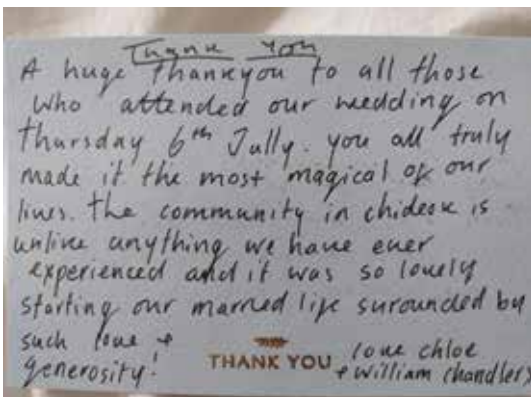 Thank You
A huge Thankyou to all those
who attended our wedding on
Thursday 6th Jully. you all truly
made it the most magical of our
lives. the community in chideok is
unlike anything we have ever
experienced and it was so lovely
starting our married life surounded by
such love +
generosity!
THANK YOU
love chloe
+ William Chandlers